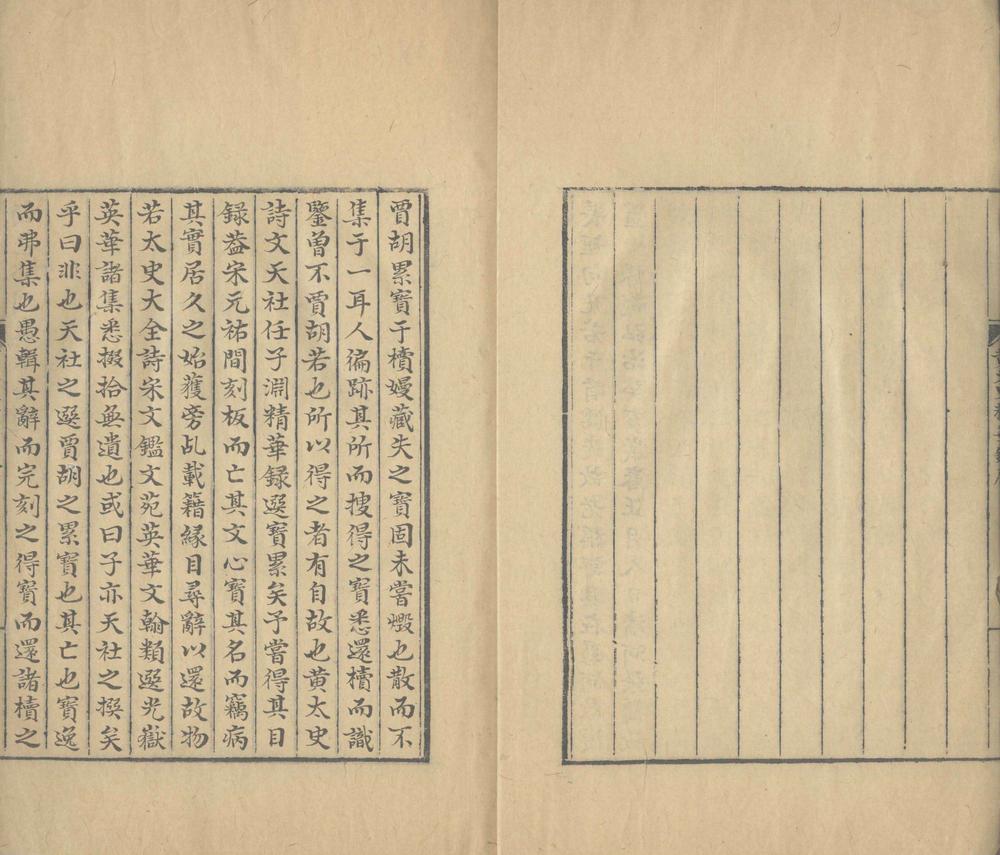 賈胡累寶于櫝嫚藏失之寶固未嘗燬也散而不
集于一耳人徧跡其所而搜得之寶悉還櫝而識
鑒曾不賈胡若也所以得之者有自故也黄太史
詩文天社任子淵精華録選寶累矣予嘗得其目
録葢宋元祐間刻板而亡其文心寶其名而竊病
其實居久之始獲旁乩載籍縁目尋辭以還故物
若太史大全詩宋文鑑文苑英華文翰類選光嶽
英華諸集悉掇拾無遺也或曰子亦天社之揆矣
乎曰非也天社之選賈胡之累寶也其亡也寶逸
而弗集也愚輯其辭而完刻之得寶而還諸櫝之